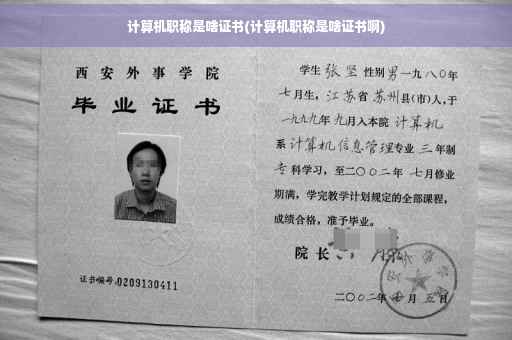 计算机职称是啥证书(计算机职称是啥证书啊)
西安外事学院
毕业证书
证书编号:0209130411
学生 张坚 性别 男 一九八〇年
七月生，江苏省 苏州县(市)人，于
一九九九年 九月入本院 计算机
系 计算机信息管理专业 三 年制
专科学习，至二〇〇二年 七月修业
期满，学完教学计划规定的全部课程，
成绩合格，准予毕业。
院长
二〇〇二年 月 五日